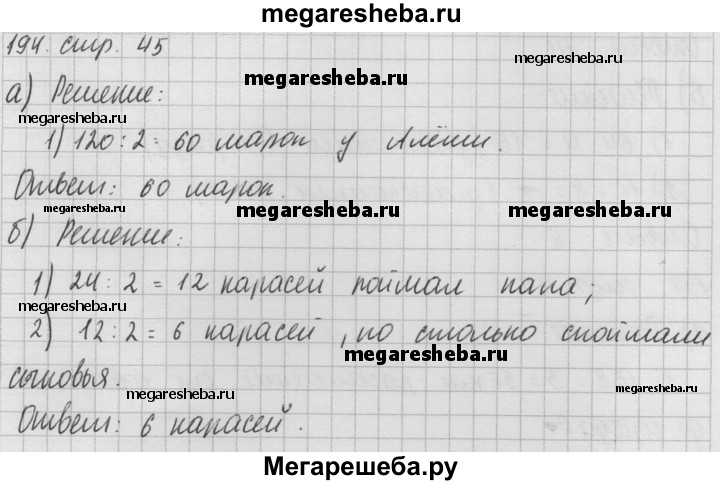 megaresheba.ru
194. стр. 45
megaresheba.ru
а) Решение:
megaresheba.ru
1) 120 : 2 = 60 марок у Алёши.
Ответ: 60 марок.
megaresheba.ru megaresheba.ru megaresheba.ru
б) Решение:
1) 24 : 2 = 12 карасей поймал папа;
megaresheba.ru
2) 12 : 2 = 6 карасей, по столько споймали
megaresheba.ru
сыновья.
megaresheba.ru megaresheba.ru
Ответ: 6 карасей.
Мегарешеба.ру